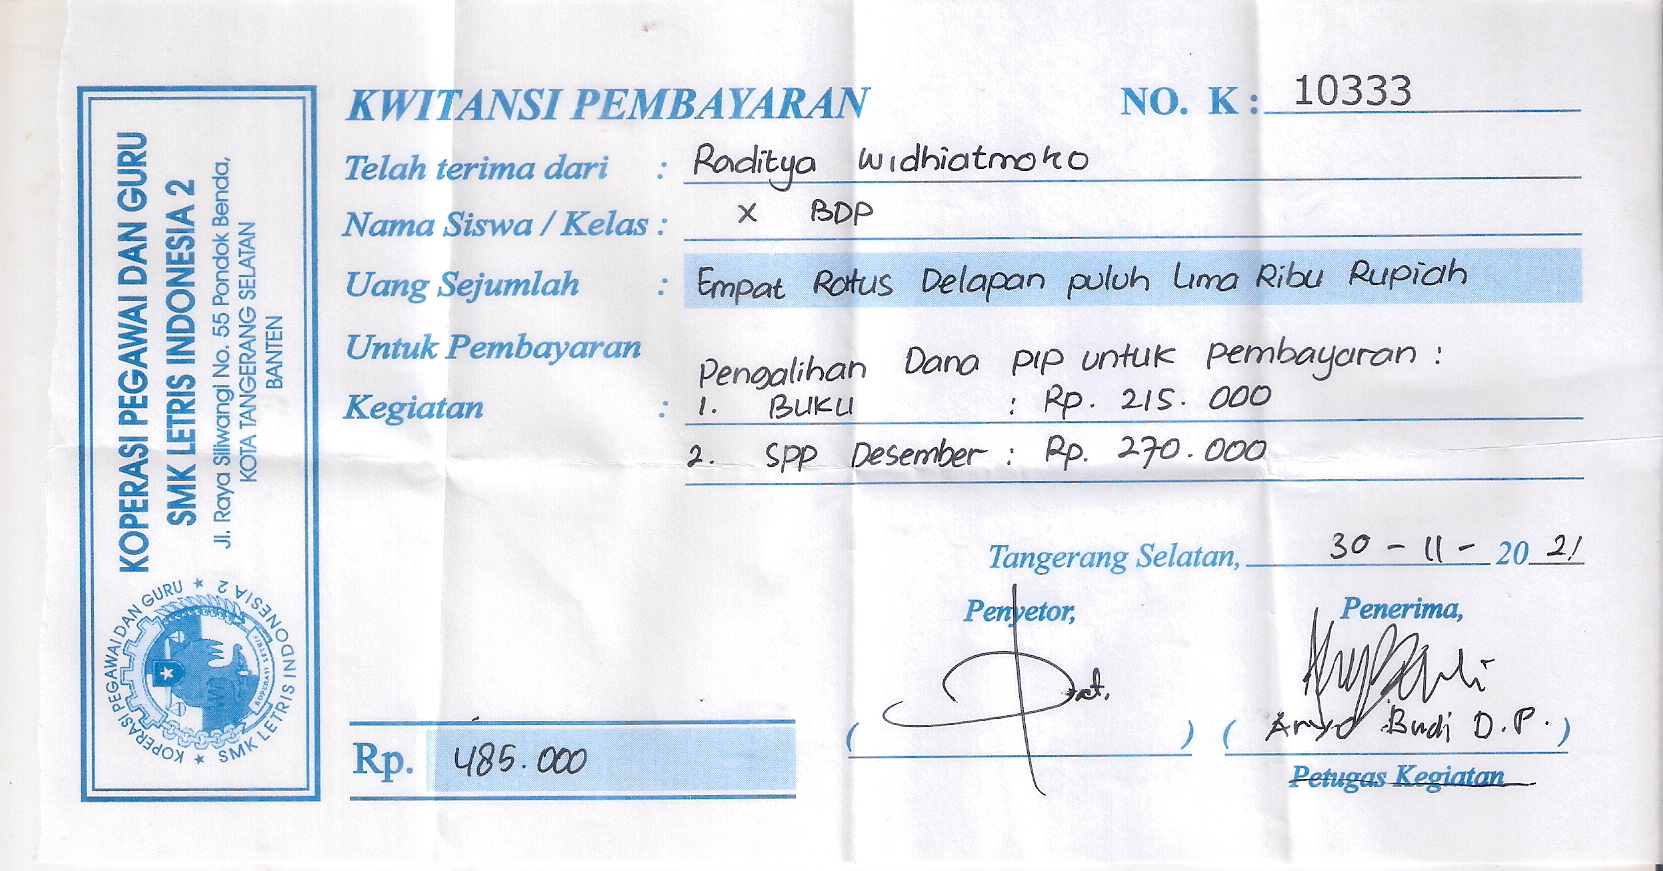 KOPERASI PEGAWAI DAN GURU
SMK LETRIS INDONESIA 2
Jl. Raya Siliwangi No. 55 Pondok Benda,
KOTA TANGERANG SELATAN
BANTEN
KOPERASI PEGAWAI DAN GURU ★ SMK LETRIS INDONESIA 2 ★
KWITANSI PEMBAYARAN
NO. K : 10333
Telah terima dari : Raditya Widhiatmoko
Nama Siswa / Kelas : X BDP
Uang Sejumlah : Empat Ratus Delapan puluh Lima Ribu Rupiah
Untuk Pembayaran
Pengalihan Dana PIP untuk pembayaran :
Kegiatan : 1. BUKU : Rp. 215.000
2. SPP Desember : Rp. 270.000
Tangerang Selatan, 30 - 11 - 20 21
Penyetor, Penerima,
( ) ( Aryo Budi D.P. )
Petugas Kegiatan
Rp. 485.000